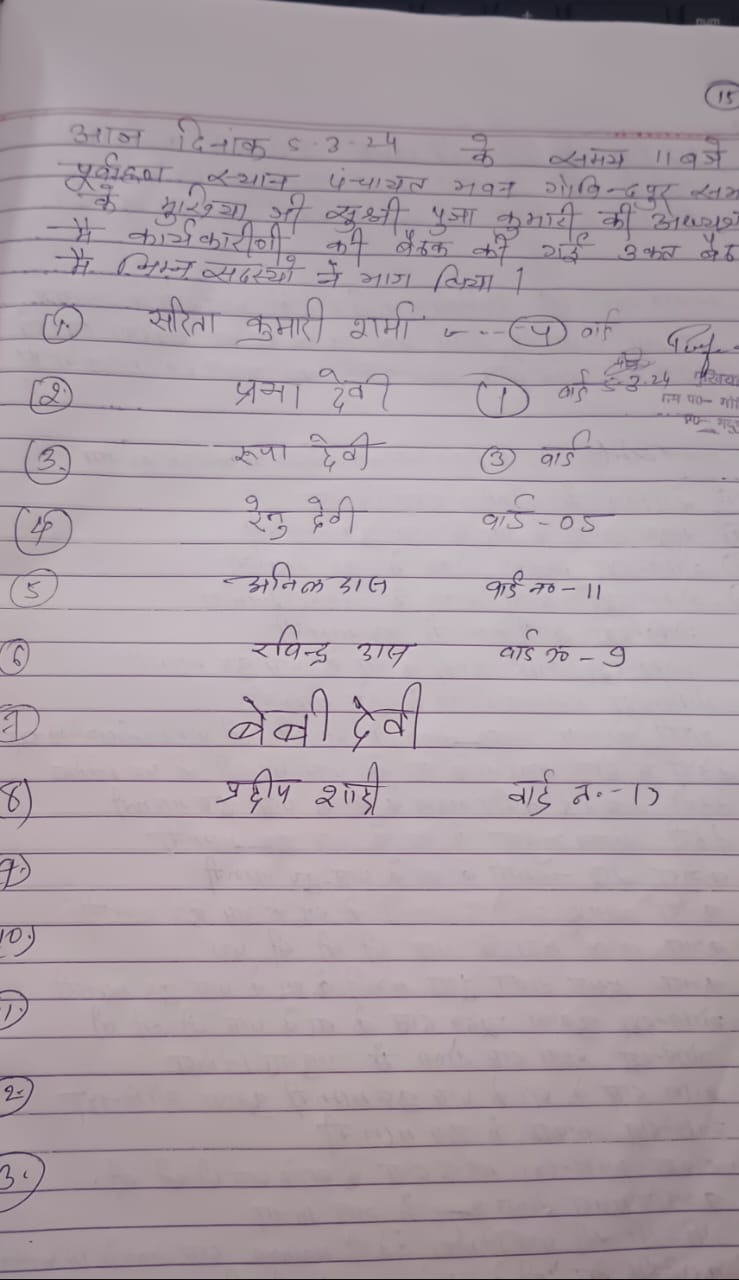 15
आज दिनांक 5-3-24 के समय 11 बजे
पूर्वाहण स्थान पंचायत भवन गोविन्दपुर
के मुखिया श्री सुश्री पुजा कुमारी की
मै कार्यकारीणी की बैठक की गई उक्त
मै निम्न सदस्यो ने भाग लिया।
1. सरिता कुमारी शर्मा 4 वार्ड
2. प्रभा देवी 1 वार्ड 5-3-24
3. रूपा देवी 3 वार्ड
4 रेनु देवी वार्ड - 05
5 अनिल दास वार्ड न० - 11
6 रविन्द्र दास वार्ड न० - 9
7 बेबी देवी
8) प्रदीप वार्ड न. -
9.
10.
1.
2.
3.